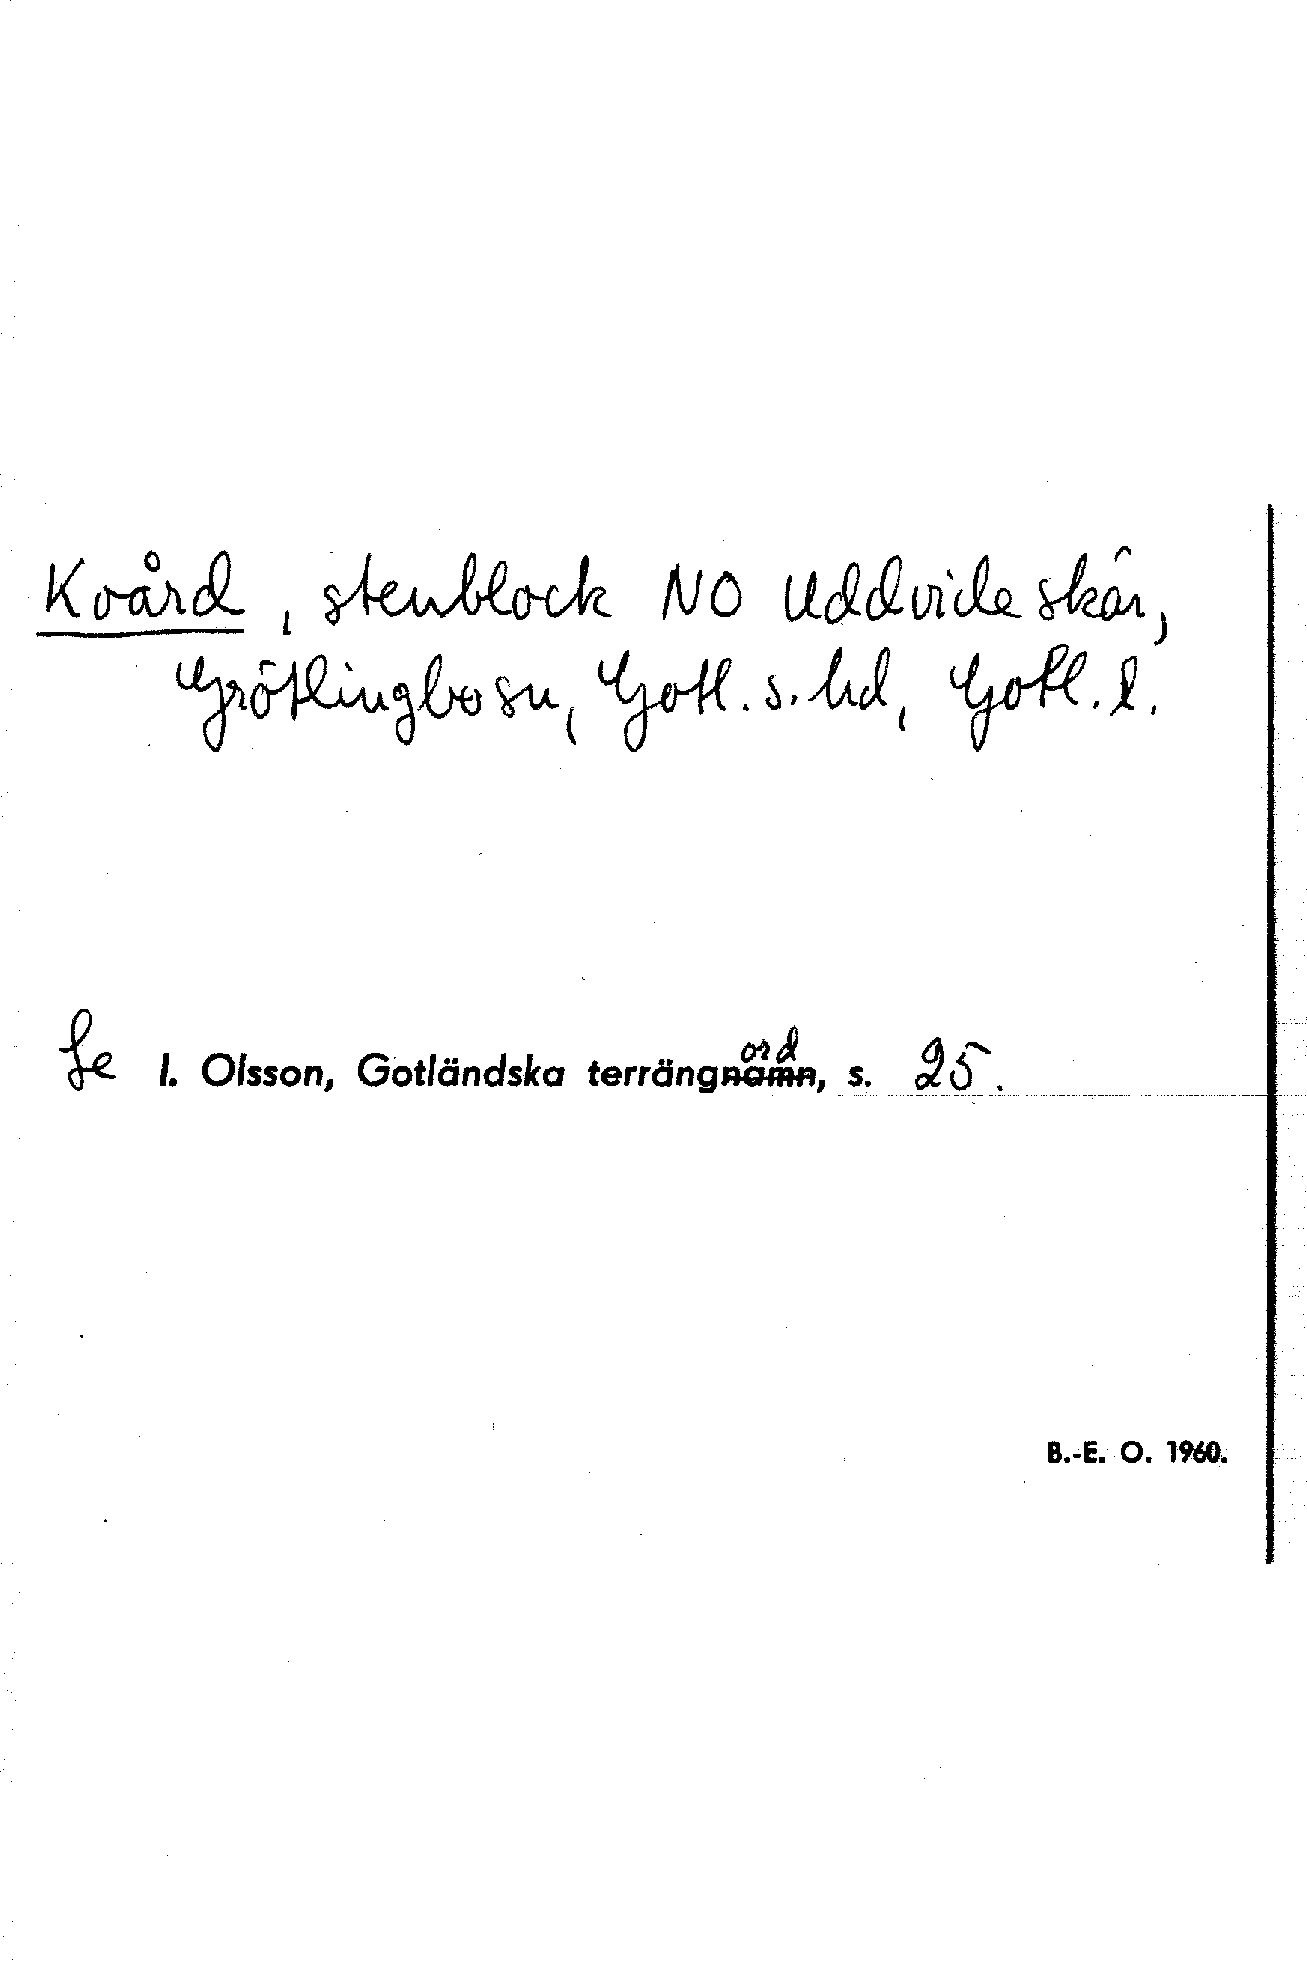 Kvård, stenblock NO Uddvide skär,
Grötlingbo sn, Gotl. s. hd, Gotl. l.
Se I. Olsson, Gotländska terräng~~namn~~ord, s. 25.
B.-E. O. 1960.